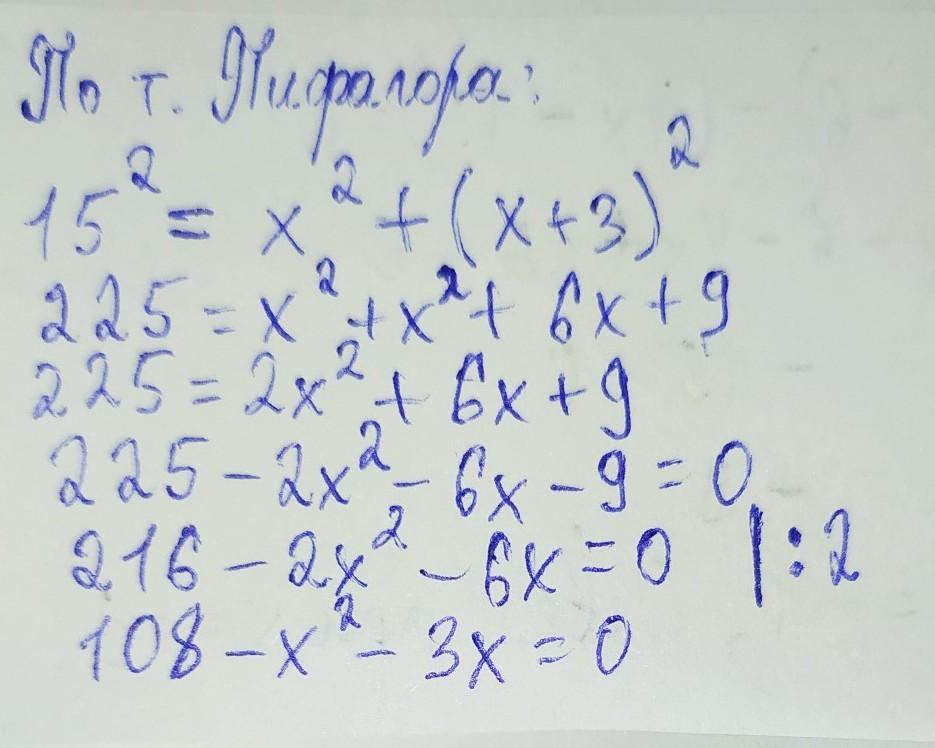 По т. Пифагора:
15² = x² + (x+3)²
225 = x² + x² + 6x + 9
225 = 2x² + 6x + 9
225 - 2x² - 6x - 9 = 0
216 - 2x² - 6x = 0 |:2
108 - x² - 3x = 0